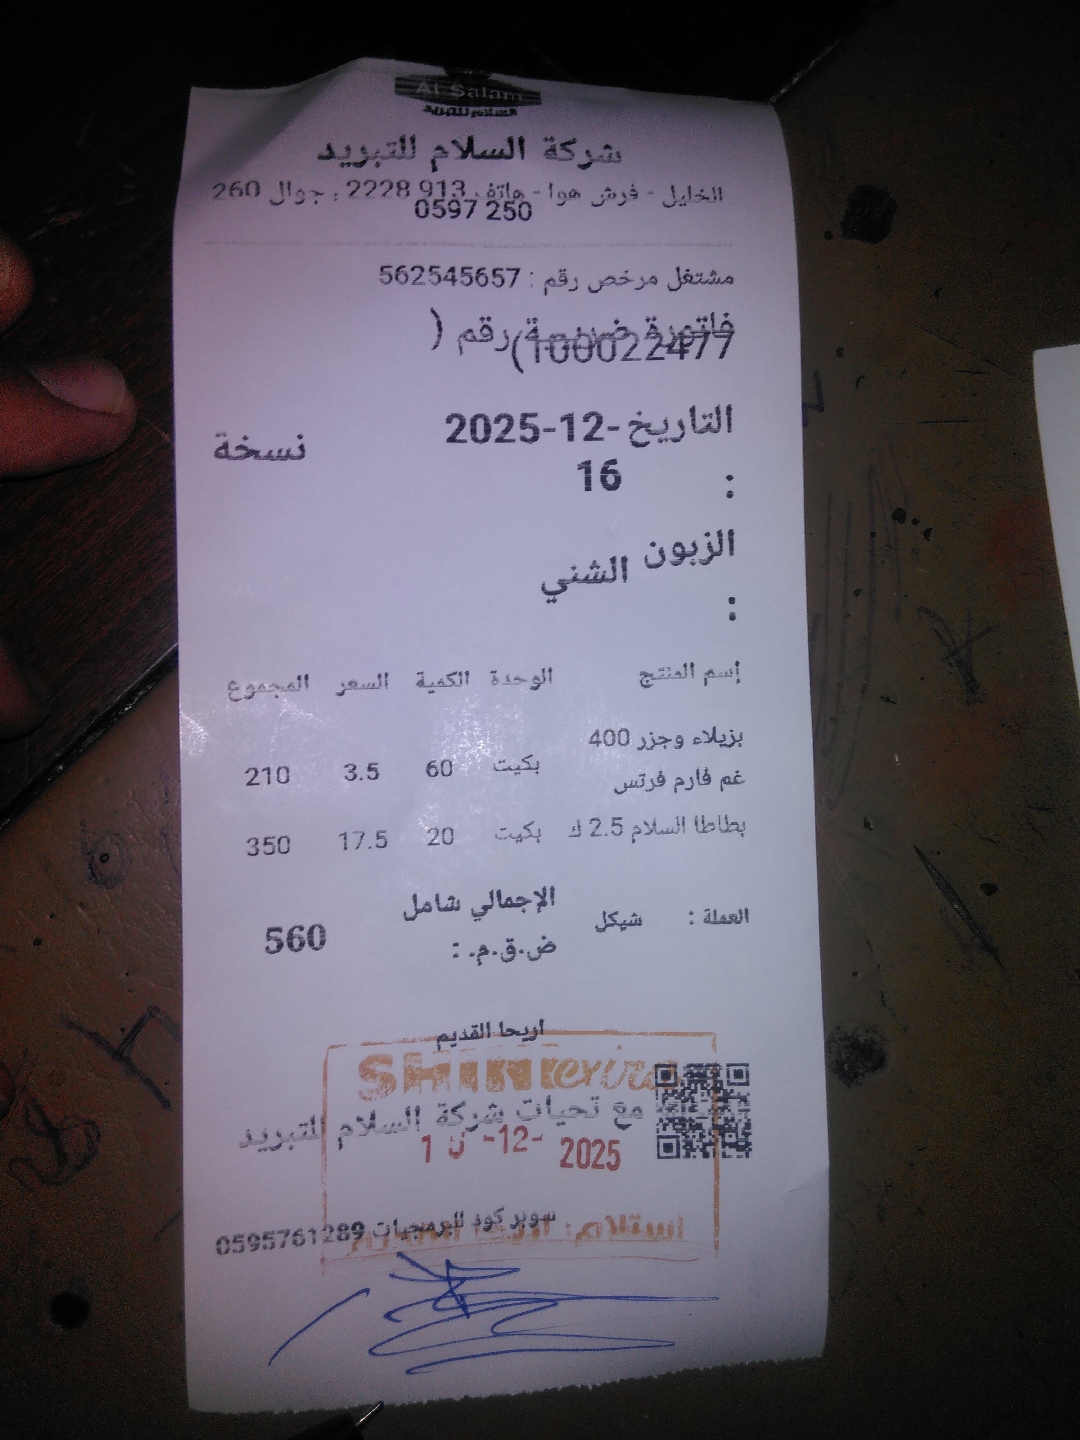 Al Salam
السلام للتبريد
شركة السلام للتبريد
الخليل - فرش هوا - هاتف 913 2228 ، جوال 260
250 0597
مشتغل مرخص رقم : 562545657
فاتورة ضريبية رقم (
100022477)
التاريخ 2025-12-
16
:
نسخة
الزبون الشني
:
إسم المنتج الوحدة الكمية السعر المجموع
بزيلاء وجزر 400
غم فارم فرتس بكيت 60 3.5 210
بطاطا السلام 2.5 ك بكيت 20 17.5 350
العملة : شيكل الإجمالي شامل
ض.ق.م. : 560
اريحا القديم
مع تحيات شركة السلام للتبريد
-12- 2025
سوبر كود للبرمجيات 0595761289
استلام: